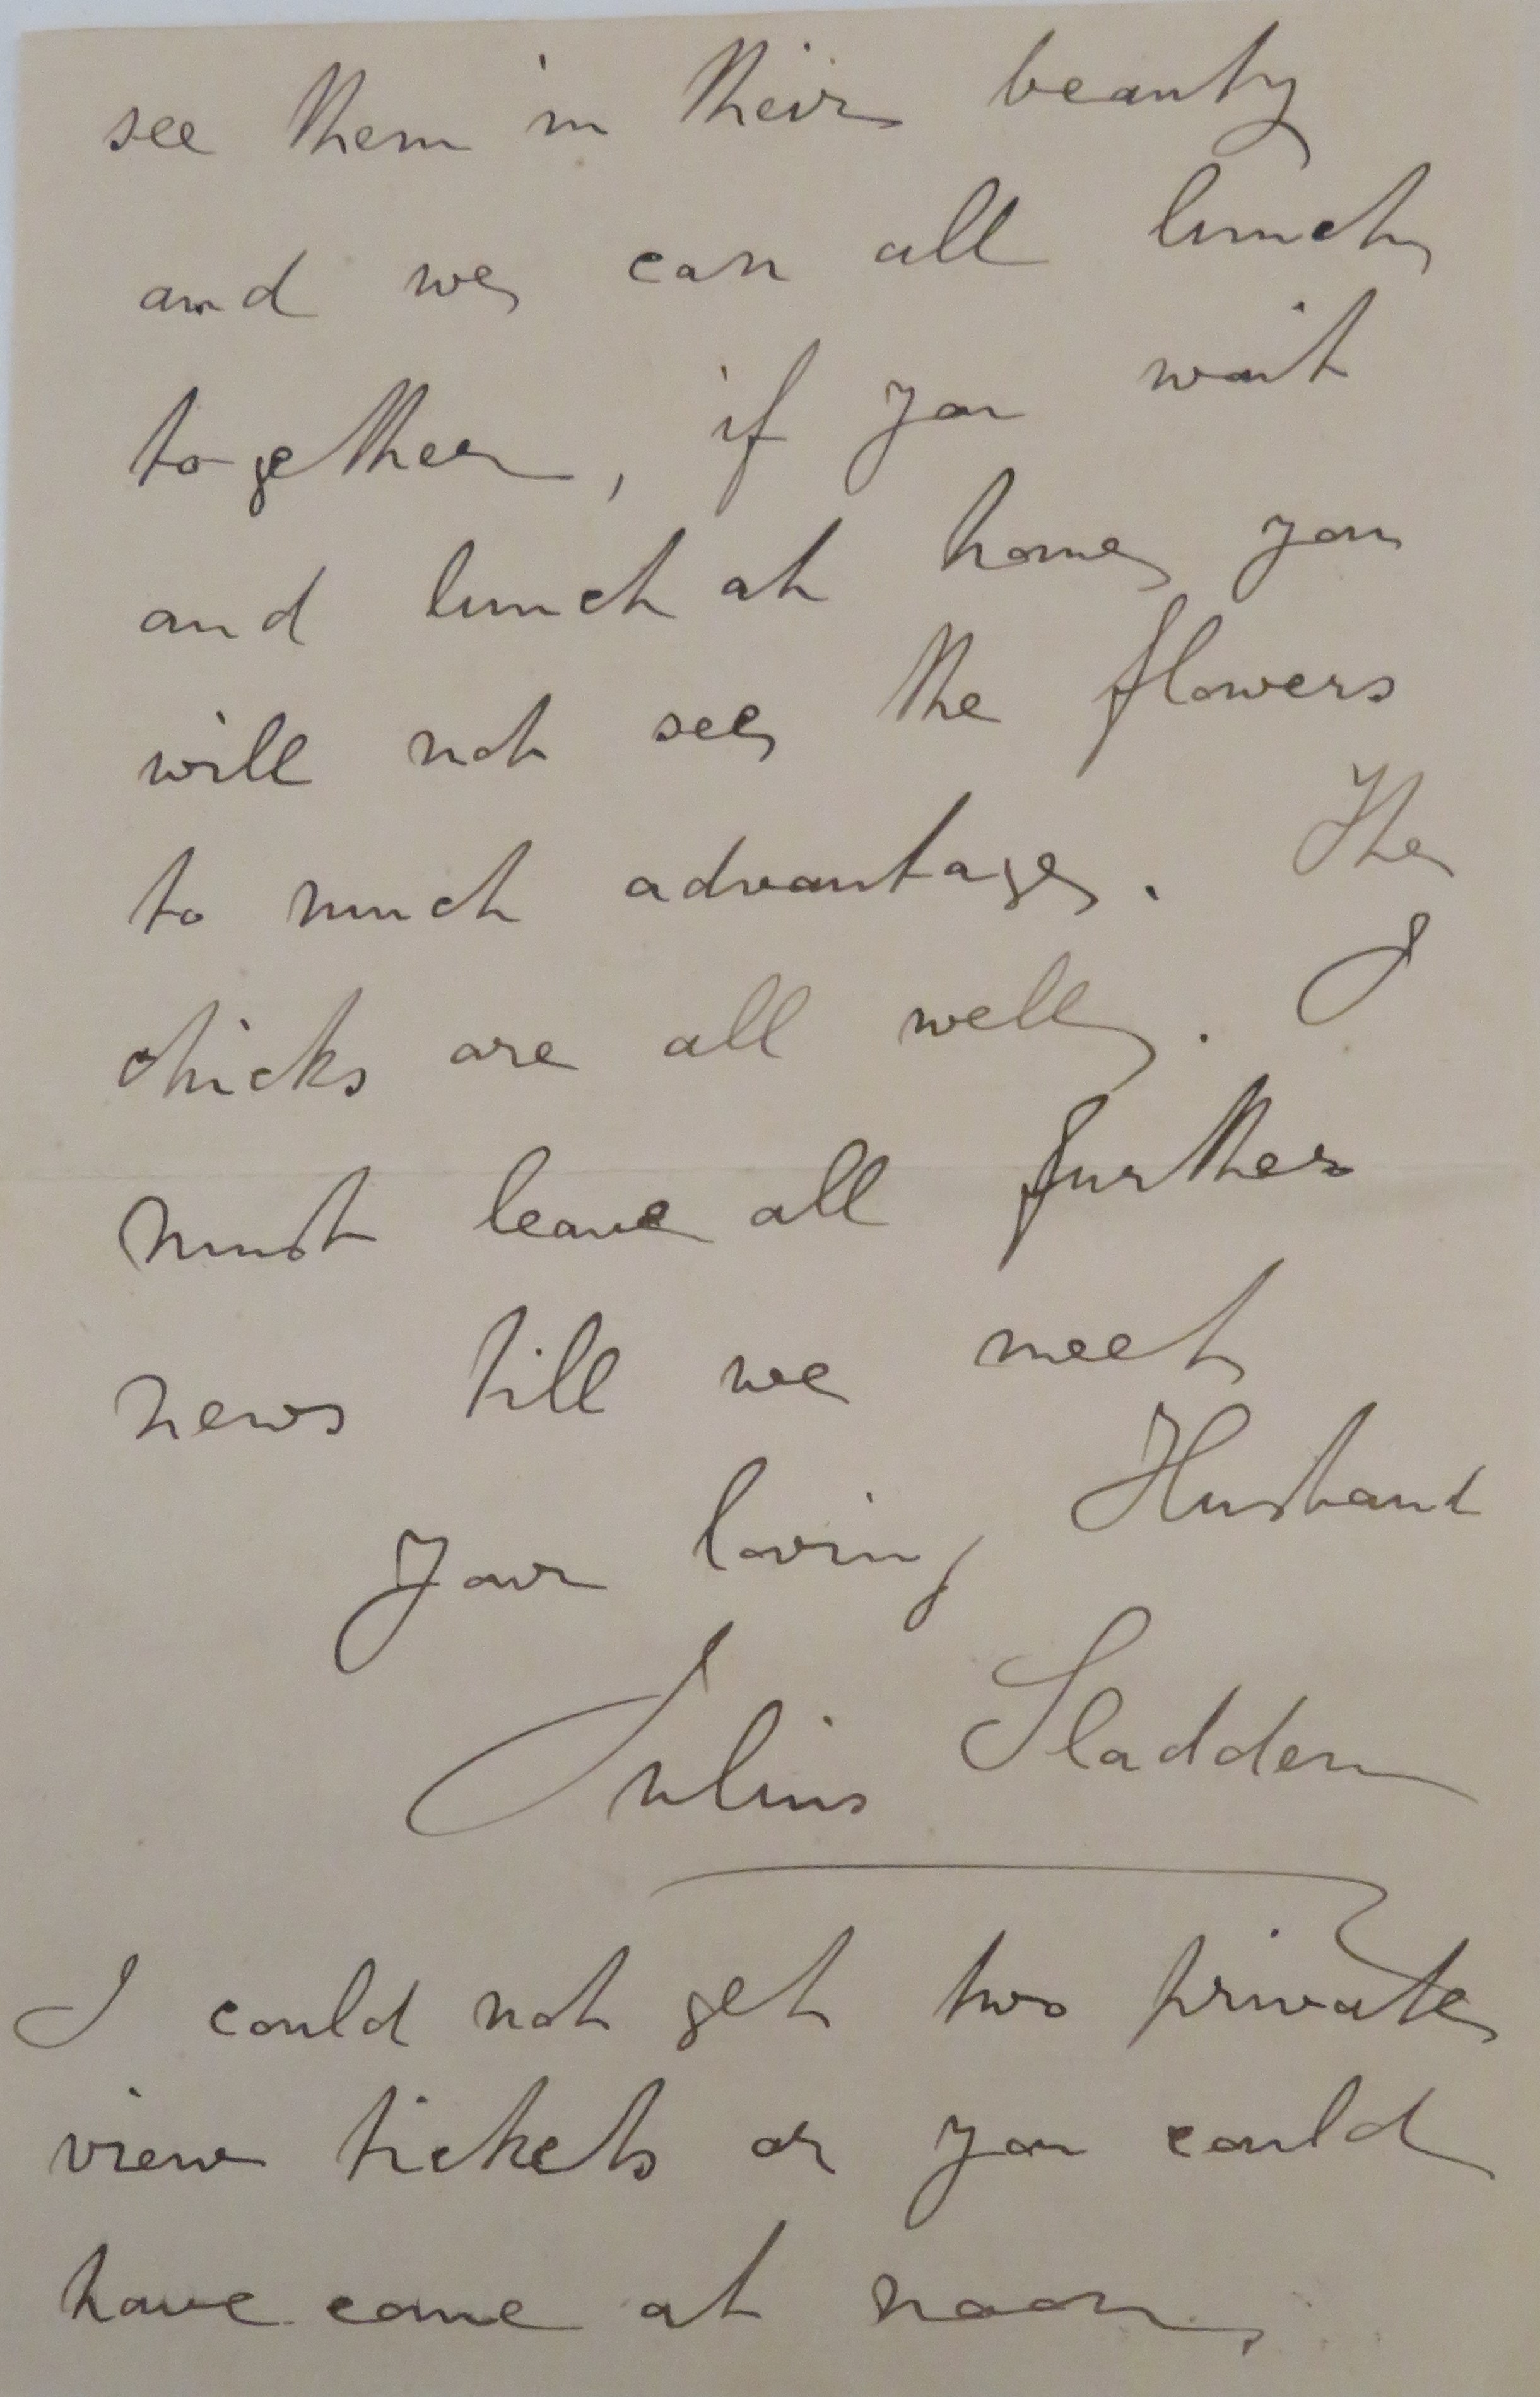 see them in their beauty
and we can all lunch
together, if you wait
and lunch at home you
will not see the flowers
to much advantage. The
chicks are all well. I
must leave all further
news till we meet
Your loving Husband
Julius Sladden
I could not get two private
view tickets or you could
have come at noon.